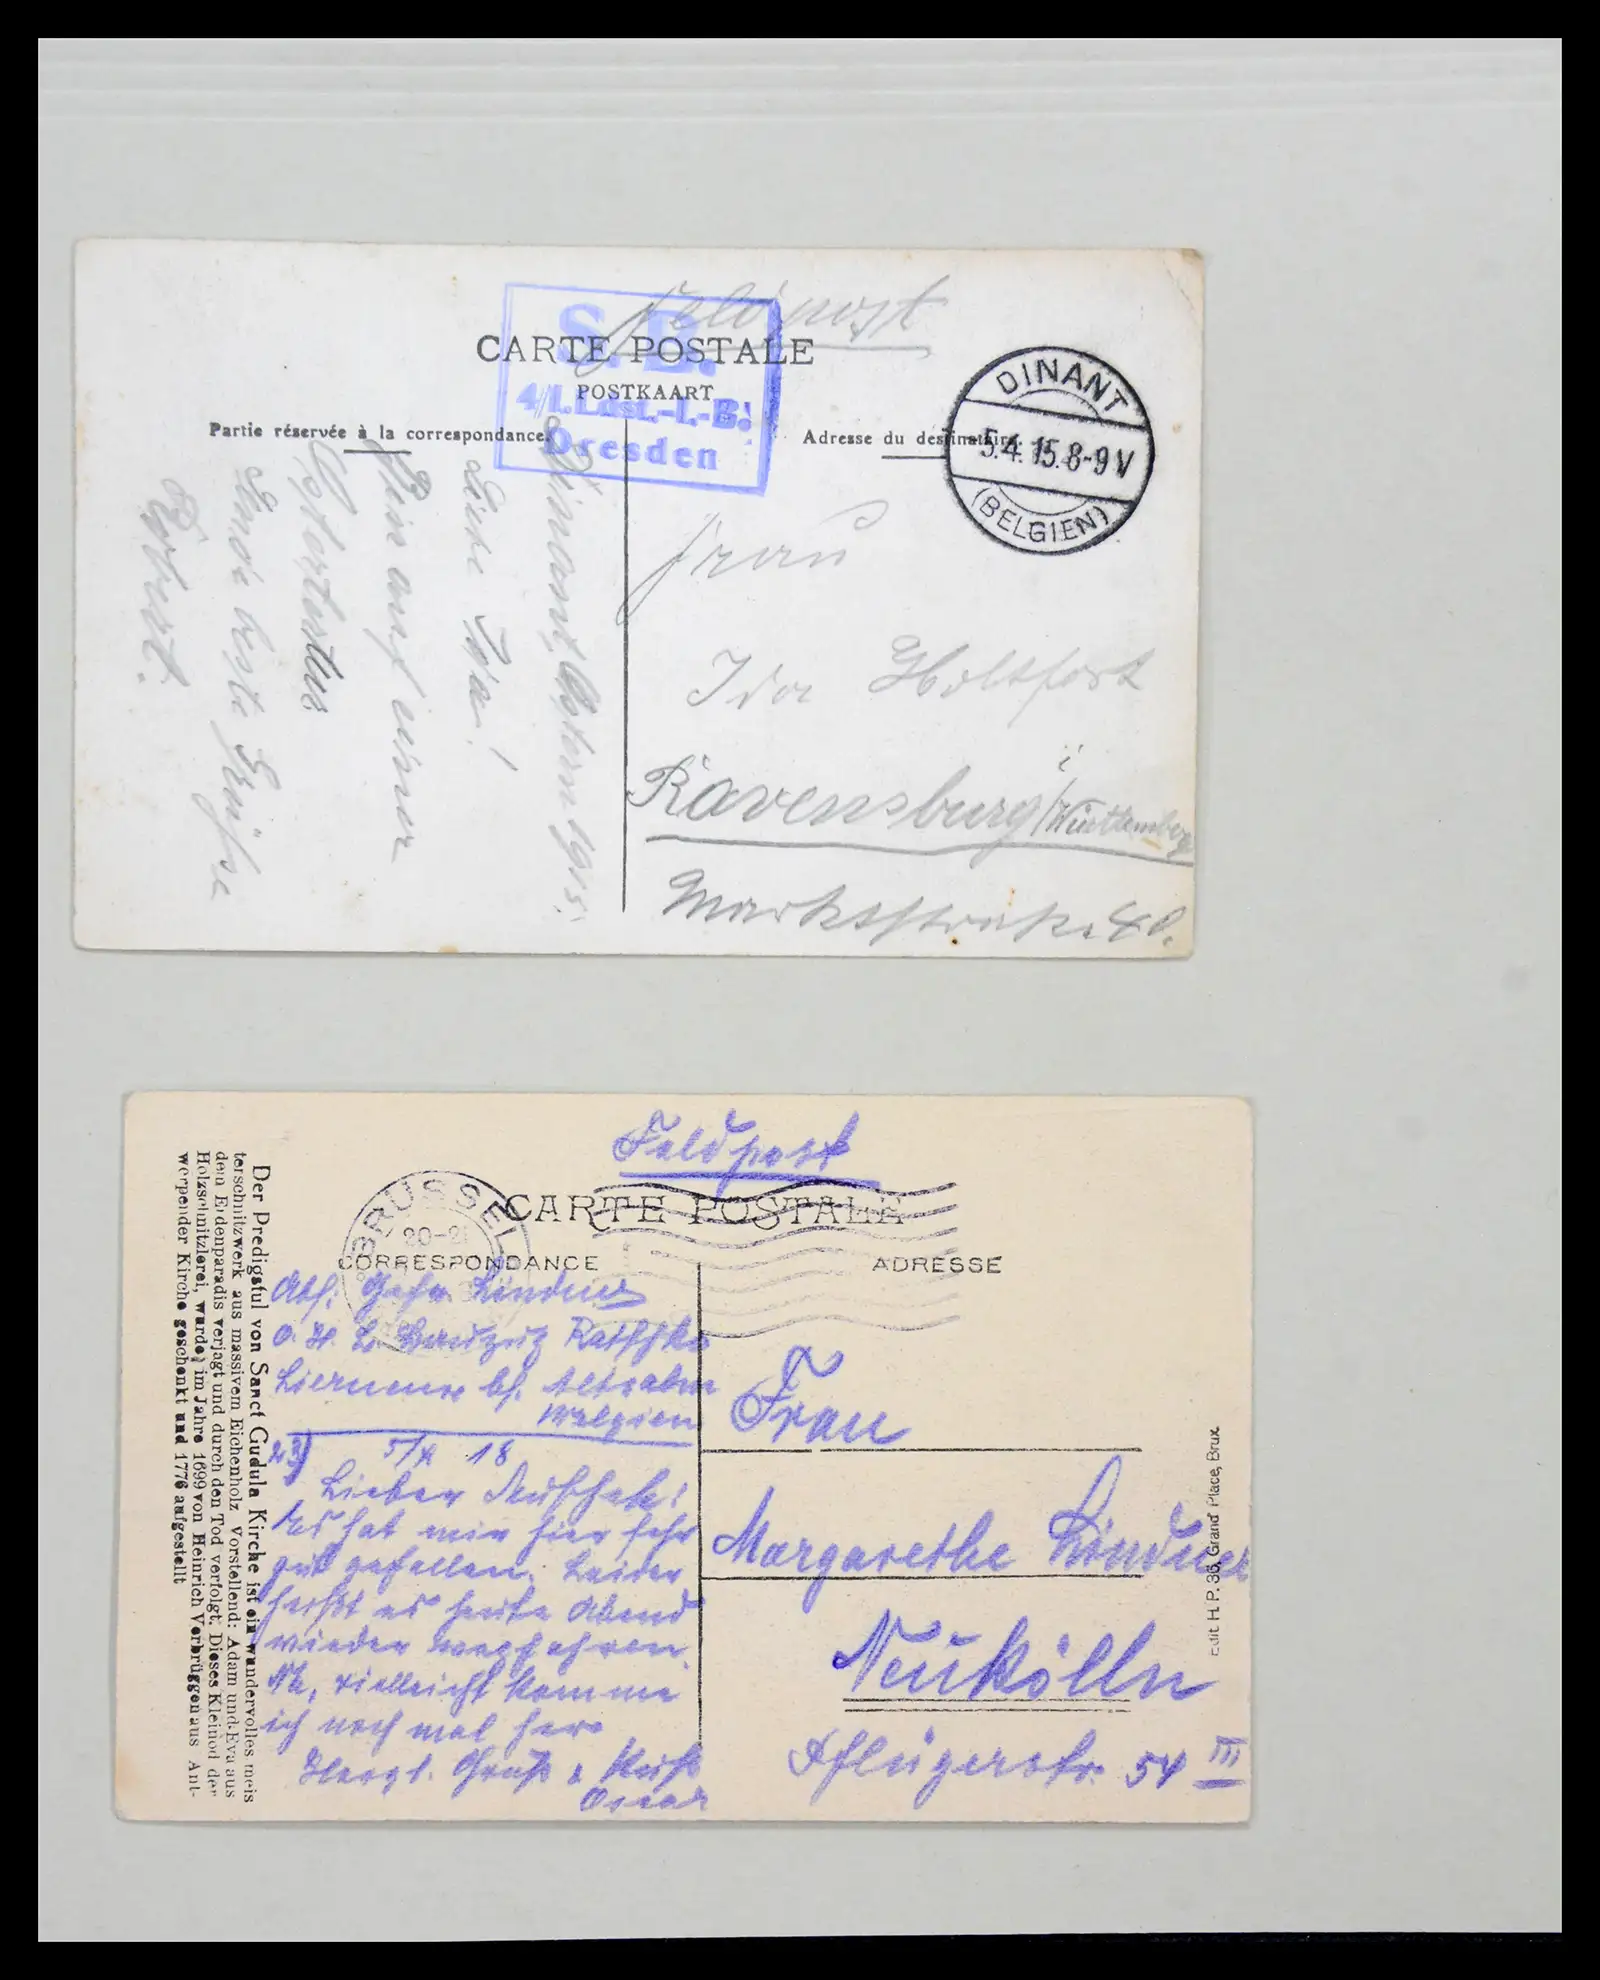 Feldpost
CARTE POSTALE
POSTKAART
S. B.
4/I.Ldst.-I.-B.
Dresden
Partie réservée à la correspondance.
Adresse du destinataire.
DINANT
5.4.15.8-9V
(BELGIEN)
Dinant, Ostern 1915.
Liebe Ida!
Bin auf einer
Sende beste Grüße
Robert.
Frau
Ida Holtfort
Ravensburg i/Württemberg
Marktstraße 40.
Feldpost
CARTE POSTALE
BRÜSSEL
20-21
CORRESPONDANCE
ADRESSE
Abs. Gefr. Lindner
Belgien
23) 5/4 18
Es hat mir hier sehr
gut gefallen. Leider
heißt es heute Abend
wieder wegfahren.
Na, vielleicht komme
ich noch mal her
Herzl. Gruß & Kuß
Oscar
Frau
Margarethe Lindner
Neukölln
Pflügerstr. 54 III
Edit. H. P. 36, Grand' Place, Brux.
Der Predigstul von Sanct Gudula Kirche ist ein wundervolles meis
terschnitzwerk aus massivem Eichenholz, vorstellend: Adam und Eva aus
dem Erdenparadis verjagt und durch den Tod verfolgt; Dieses Kleinod der
Holzschnitzlerei, wurde, im Jahre 1699 von Heinrich Verbrüggen aus Ant-
werpender Kirche geschenkt und 1776 aufgestellt